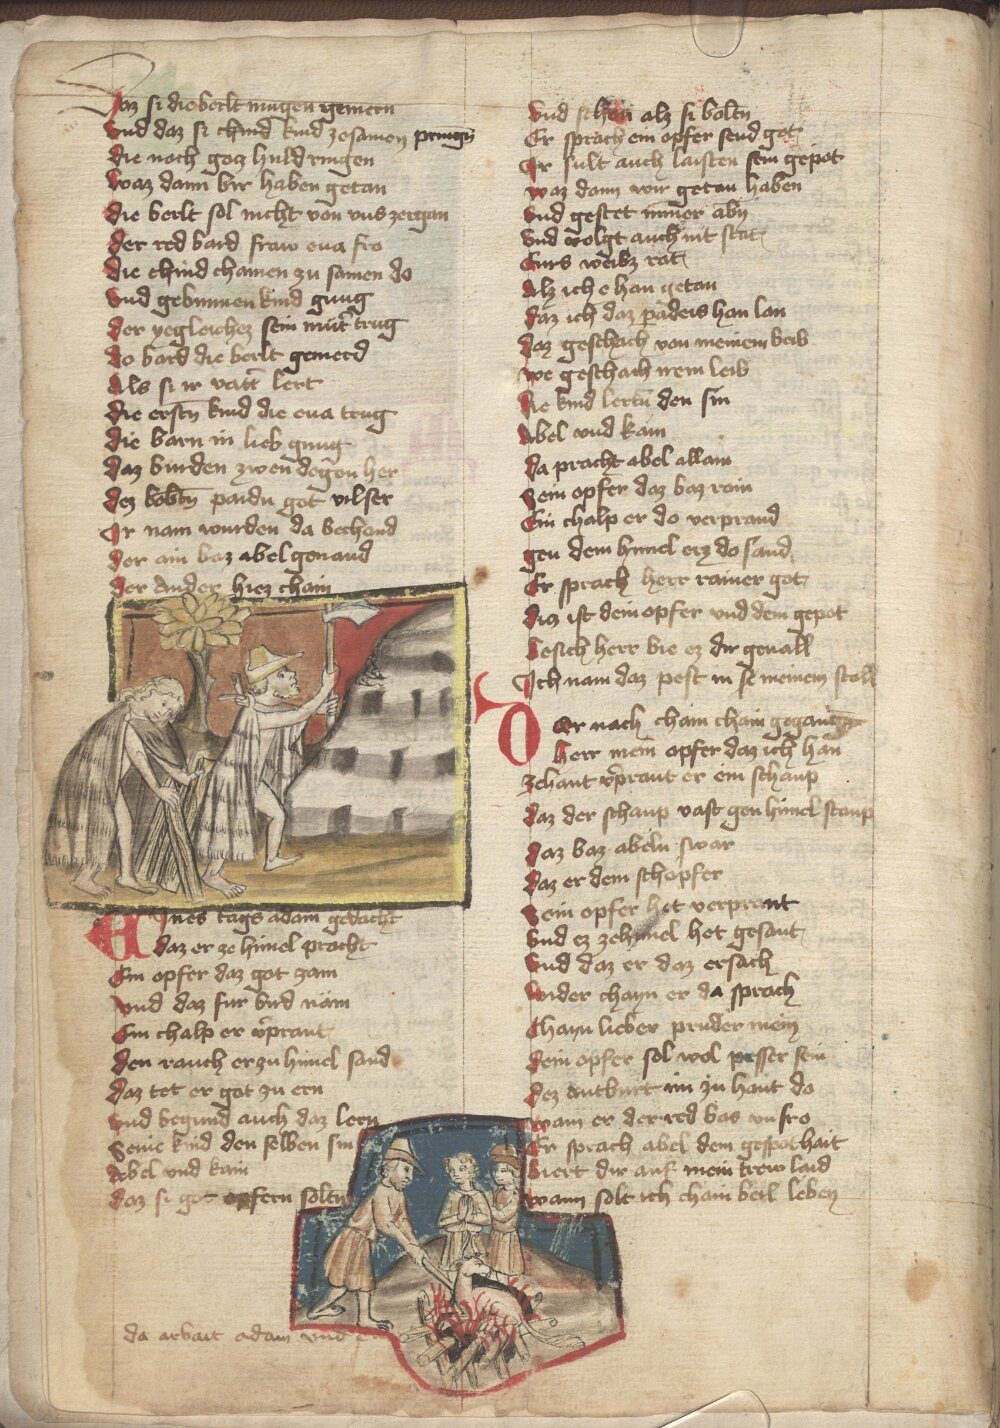 Daz si die berlt mugen gemern
Vnd daz si chind kind zesamen pringn
die noch gotz huld ringen
Waz dann bir haben getan
die berlt sol nicht von vns zergan
der red bard fraw eua fro
die chind chamen zu samen do
Vnd gebunnen kind gnug
der yegleichez sein mut͛ trug
do bard die berlt gemerd
Als si ir vat͛ lert
die erstn̄ kind die eua trug
die barn in lieb gnug
daz burden zwen degen her
dez bobtn̄ paidu got vil ser
Ir nam wurden da bechend
der ain baz abel genand
der Ander hiez chain
EInes tags adam gedacht
daz er ze himel pracht
Ein opfer daz got zam
Vnd daz fur bird nam
Ein chalp er v͛prant
den rauch er zu himel sand
daz tet er got zu ern
Vnd begund auch daz lern
Seine kind den selben sin
Abel vnd kain
daz si got opfern soltn
da arbait adam vnd e
Vnd si hetn alz si boltn
Er sprach ein opfer send got
Ir sult auch laisten sein gepot
waz dann wir getan haben
Vnd gestet immer abn
Vnd volgt auch nit stat
Eurs weibz rat
Alz ich e han getan
daz ich daz padeis han lan
daz geschach von meinem beib
we geschach irem leib
die kind lertn den sin
Abel vnd kain
da pracht abel allain
Sein opfer daz baz rain
Ein chalp er do verprand
gen dem himel erz do sand
Er sprach herr rainer got
diz ist dein opfer vnd dein gepot
Besich herr bie ez dir geuall
Ich nam daz pest in se meinem stall
Der nach cham chain gegangen
herr mein opfer daz ich han
Zehant v͛prant er ein schaup
daz der schaup vast gen himel staup
daz baz abeln swar
daz er dem schopfer
Sein opfer het verprant
Vnd ez ze himel het gesant
Vnd daz er daz ersach
Wider chayn er da sprach
Chayn lieber pruder mein
dein opfer sol wol pesser sein
dez antburt im zu hant do
wann er der red bas vnfro
Er sprach abel dein gespothait
biert dir auf mein trew laid
wann solt ich chain beil leben